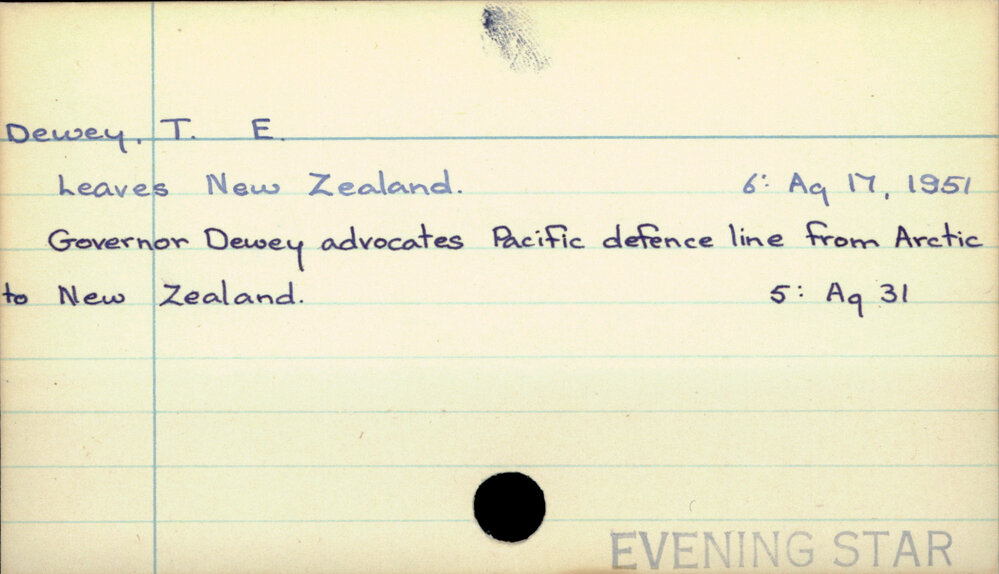 Dewey, T. E.
Leaves New Zealand. 6: Ag 17, 1951
Governor Dewey advocates Pacific defence line from Arctic
to New Zealand. 5: Ag 31
EVENING STAR